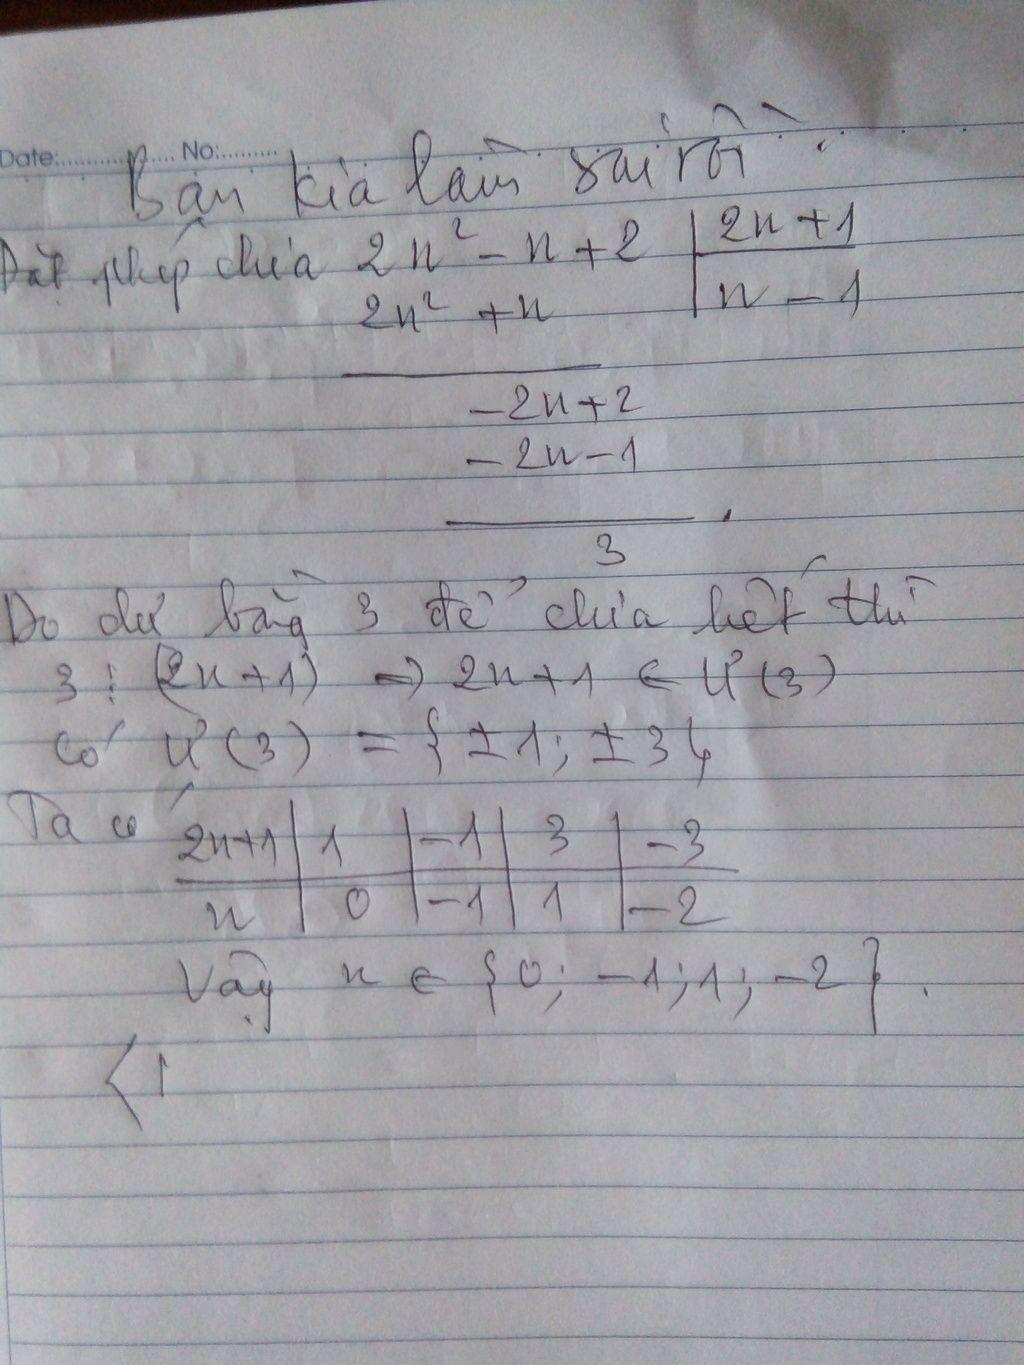 Date:.................... No:..........
Bạn kia làm sai rồi.
Đặt phép chia 2n² - n + 2 | 2n + 1
2n² + n | n - 1
-2n + 2
-2n - 1
3
Do dư bằng 3 để chia hết thì
3 ⋮ (2n + 1) => 2n + 1 ∈ Ư(3)
Có Ư(3) = {±1; ±3}
Ta có 2n+1 | 1 | -1 | 3 | -3
n | 0 | -1 | 1 | -2
Vậy n ∈ {0; -1; 1; -2}.